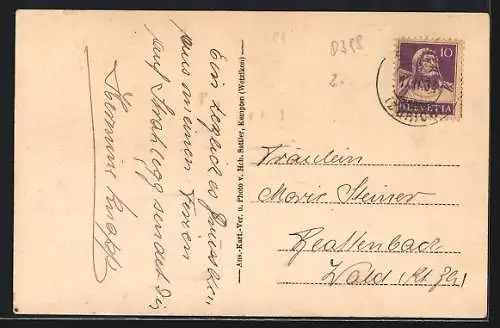 Ein herzliches Grüsschen
aus meinen Ferien
auf Strahlegg sendet Dir
Hermine Knapp
Ans.-Kart.-Ver. u. Photo v. Hch. Sattler, Kempten (Wetzikon)
D398
2.-
10
HELVETIA
Fräulein
Marie Steiner
Blattenbach
Wald (Kt. Zh.)